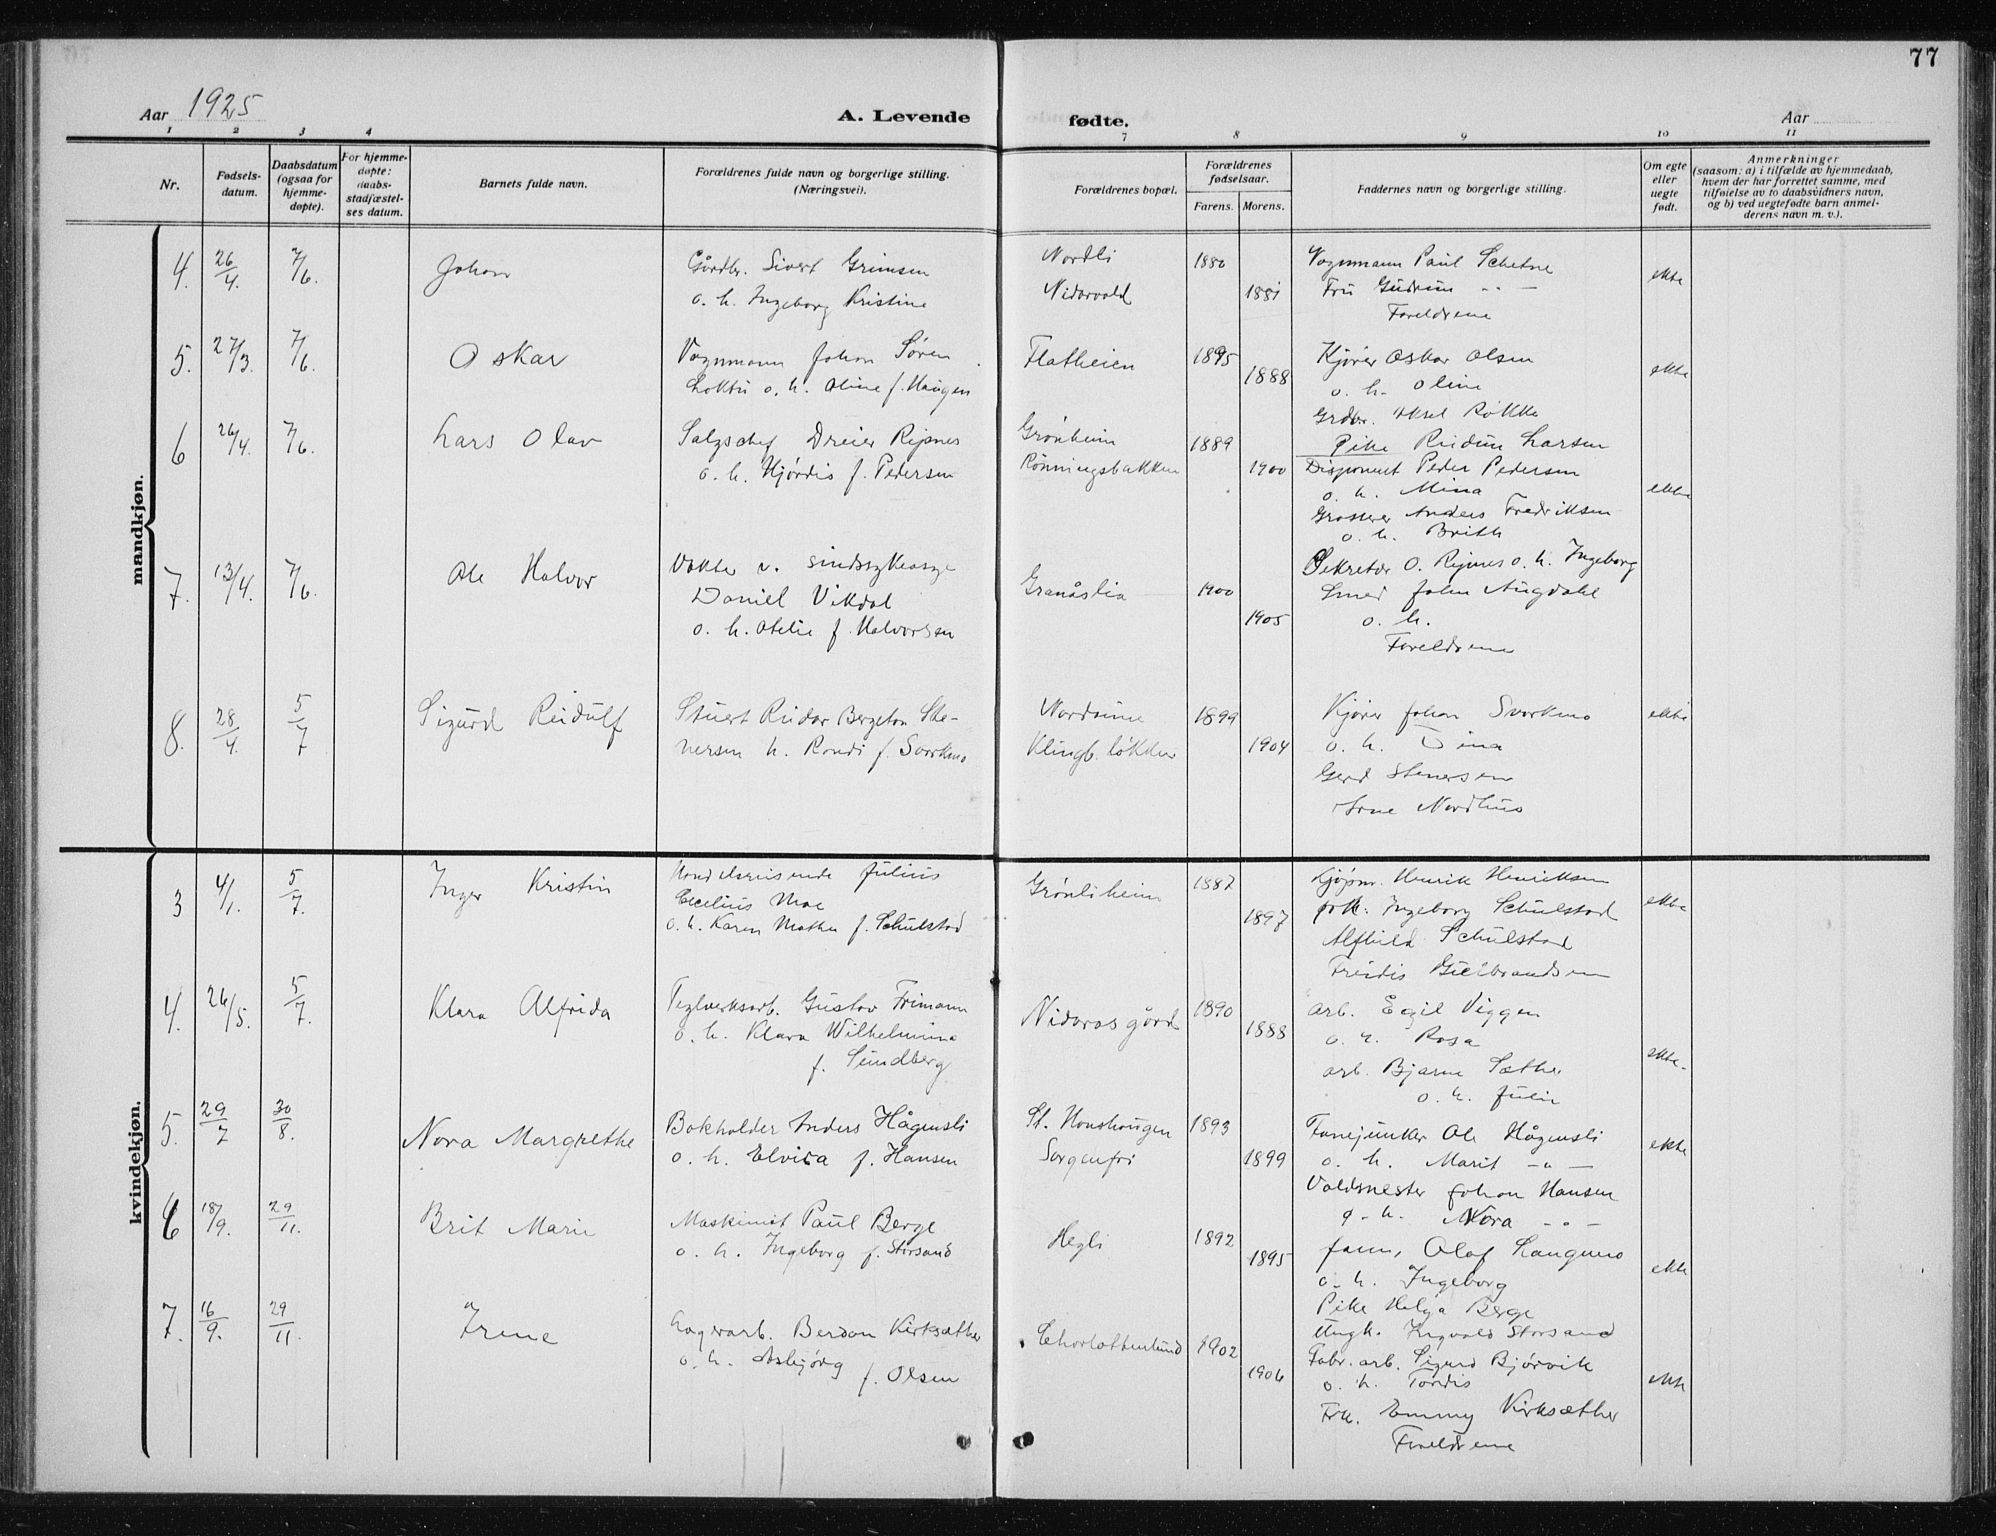 77
Aar 1925
A. Levende fødte.
Aar
1 2 3 4 7 8 9 10 11
Nr.
Fødsels-
datum.
Daabsdatum
(ogsaa for
hjemme-
døpte).
For hjemme-
døpte:
daabs-
stadfæstel-
ses datum.
Barnets fulde navn.
Forældrenes fulde navn og borgerlige stilling.
(Næringsvei).
Forældrenes bopæl.
Forældrenes
fødselsaar.
Farens. Morens.
Faddernes navn og borgerlige stilling.
Om egte
eller
uegte
født.
Anmerkninger
(saasom: a) i tilfælde av hjemmedaab,
hvem der har forrettet samme, med
tilføielse av to daabsvidners navn,
og b) ved uegtefødte barn anmel-
derens navn m. v.).
mandkjøn.
4. 26/4. 7/6. Johan
Gårdbr. Sivert Grimsen
o. h. Ingeborg Kristine
Nordli
Nidarvold
1880
1881
Vognmann Paul Schetne
Fru Gudrun -"-
Foreldrene
ekte
5. 27/3. 7/6. Oskar
Vognmann Johan Søren
Loktu o. h. Oline f. Haugen
Flatheien
1895
1888
Kjører Oskar Olsen
o. h. Oline
Grdbr. Aksel Røkke
Pike Reidun Larsen
ekte
6 26/4. 7/6. Lars Olav
Salgschef Dreier Ripnes
o. h. Hjørdis f. Pedersen
Grønheim
Rønningsbakken
1889
1900
Disponent Peder Pedersen
o. h. Mina
Grosserer Anders Fredriksen
o. h. Brith
Sekretær O. Ripnes o. h. Ingeborg
ekte
7. 13/4. 7/6. Ole Halvor
Vokter v. sindssykeasyl
Daniel Vikdal
o. h. Otelie f. Halvorsen
Granåslia
1900
1905
Smed John Augdahl
o. h.
Foreldrene
8. 28/4 5/7 Sigurd Reidulf
Stuert Reidar Bergeton Ste-
nersen h. Rondi f. Svorkmo
Nordsine
Klingb. løkken
1899
1904
Kjører Johan Svorkmo
o. h. Dina
Gerd Stenersen
Arne Nordhus
ekte
kvindekjøn.
3 4/1. 5/7. Inger Kristin
Handelsreisende Julius
Cecelius Moe
o. h. Karen Mathea f. Schulstad
Grønliheim
1887
1897
Kjøpm. Henrik Henriksen
frk. Ingeborg Schulstad
Alfhild Schulstad
Freidis Gulbrandsen
ekte
4. 26/5. 5/7. Klara Alfrida
Teglverksarb. Gustav Frimann
o. h. Klara Wilhelmina
f. Sundberg
Nidaros gård
1890
1888
arb. Egil Viggen
o. h. Rosa
arb. Bjarne Sæther
o. h. Julie
ekte.
5. 29/7 30/8. Nora Margrethe
Bokholder Anders Hågensli
o. h. Elvira f. Hansen
St. Hanshaugen
Sorgenfri
1893
1899
Fanejunker Ole Hågensli
o. h. Marit -"-
Valdsmester Johan Hansen
o. h. Nora -"-
ekte
6 18/9. 29/11. Brit Marie
Maskinist Paul Berge
o. h. Ingeborg f. Storsand
Hegli
1892
1895
form, Olaf Langmo
o. h. Ingeborg
Pike Helga Berge
Ungk. Ingvald Storsand
ekte
7. 16/9. 29/11. Irene
Lagerarb. Berdon Kirksæther
o. h. Asbjørg f. Olsen
Charlottenlund
1902
1906
Fabr. arb. Sigurd Bjørvik
o. h. Tordis
Frk. Emmy Kirksæther
Foreldrene
ekte